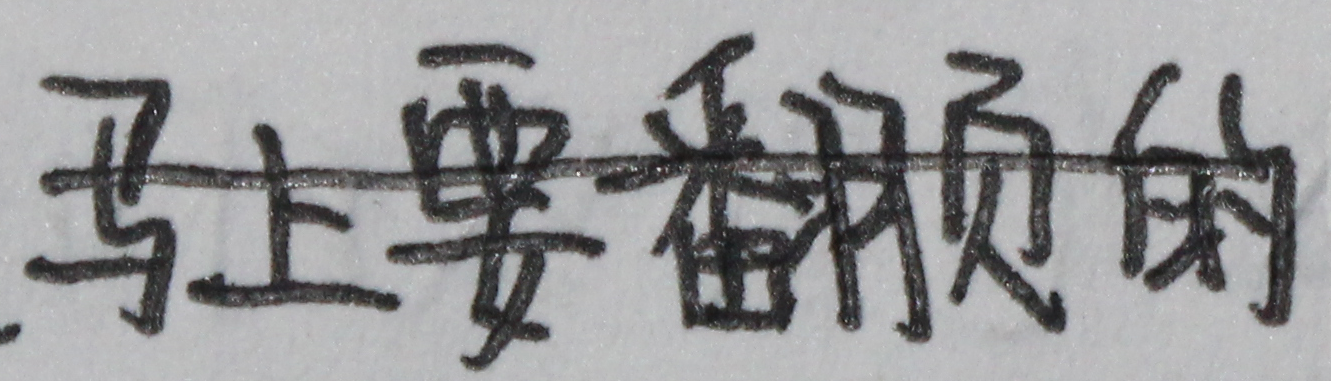 马上要翻页的